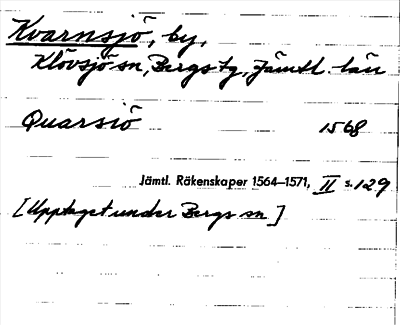 Kvarnsjö, by,
Klövsjö sn, Bergs tg, Jämtl. län
Quarsiö 1568
Jämtl. Räkenskaper 1564–1571, II s. 129
[Upptaget under Bergs sn]